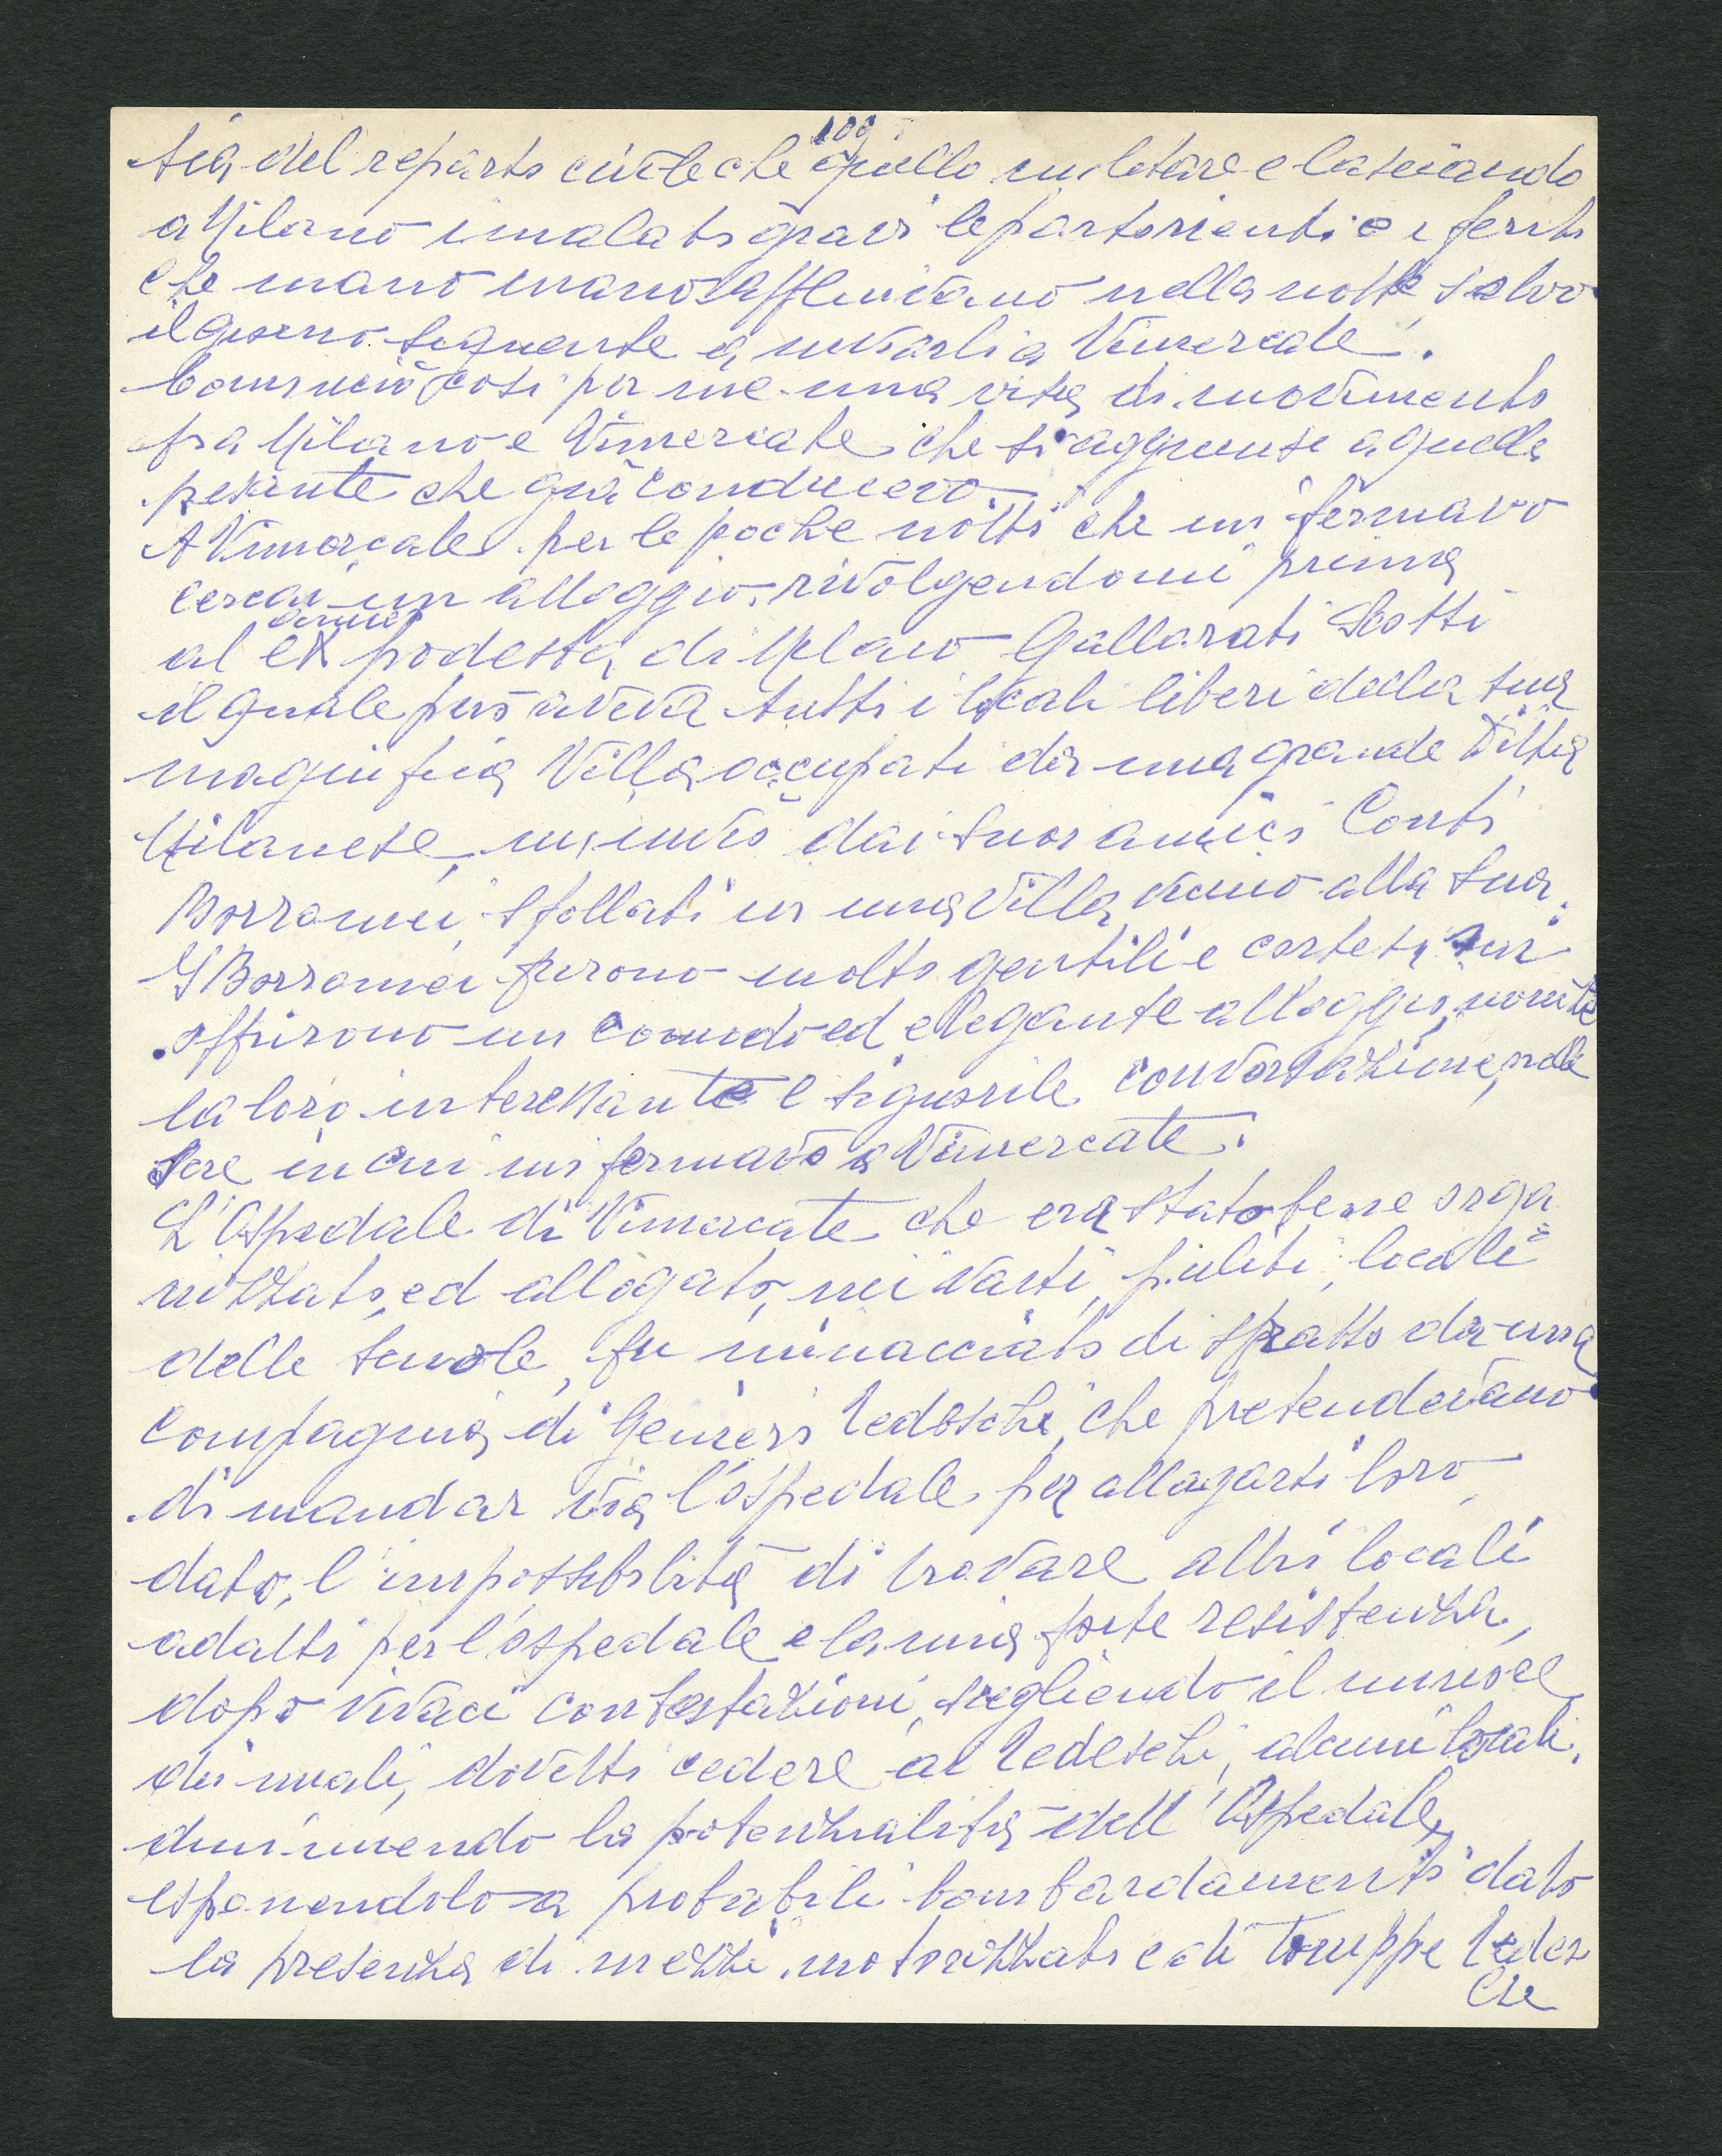 109
sia del reparto civile che quello militare e lasciando
a Milano i malati gravi le partorienti e i feriti
che mano mano affluivano nella notte, salvo
il giorno seguente a inviarli a Vimercate.
Cominciò così per me una vita di movimento
fra Milano e Vimercate che si aggiunse a quella
pesante che già conducevo.
A Vimercate per le poche notti che mi fermavo
cercai un alloggio, rivolgendomi prima
amico
al ex podestà di Milano Gallarati Scotti
il quale però aveva tutti i locali liberi della sua
magnifica Villa occupati da una grande Ditta
Milanese, mi inviò dai suoi amici Conti
Borromei, sfollati in una Villa vicino alla sua.
I Borromei furono molto gentili e cortesi, mi
offrirono un comodo ed elegante alloggio, nonché
la loro interessante e signorile conversazione, nelle
sere in cui mi fermavo a Vimercate.
L'Ospedale di Vimercate che era stato bene orga
nizzato, ed allogato, nei vasti, puliti, locali
delle scuole, fu minacciato di sfratto da una
compagnia di Genieri Tedeschi, che pretendevano
di mandar via l'ospedale per allogarsi loro,
dato, l'impossibilità di trovare altri locali
adatti per l'ospedale e la mia forte resistenza,
dopo vivaci contestazioni, scegliendo il minore
dei mali, dovetti cedere ai Tedeschi, alcuni locali,
diminuendo la potenzialità dell'Ospedale,
esponendolo a probabili bombardamenti dato
la presenza di mezzi motorizzati e di truppe tedes
che